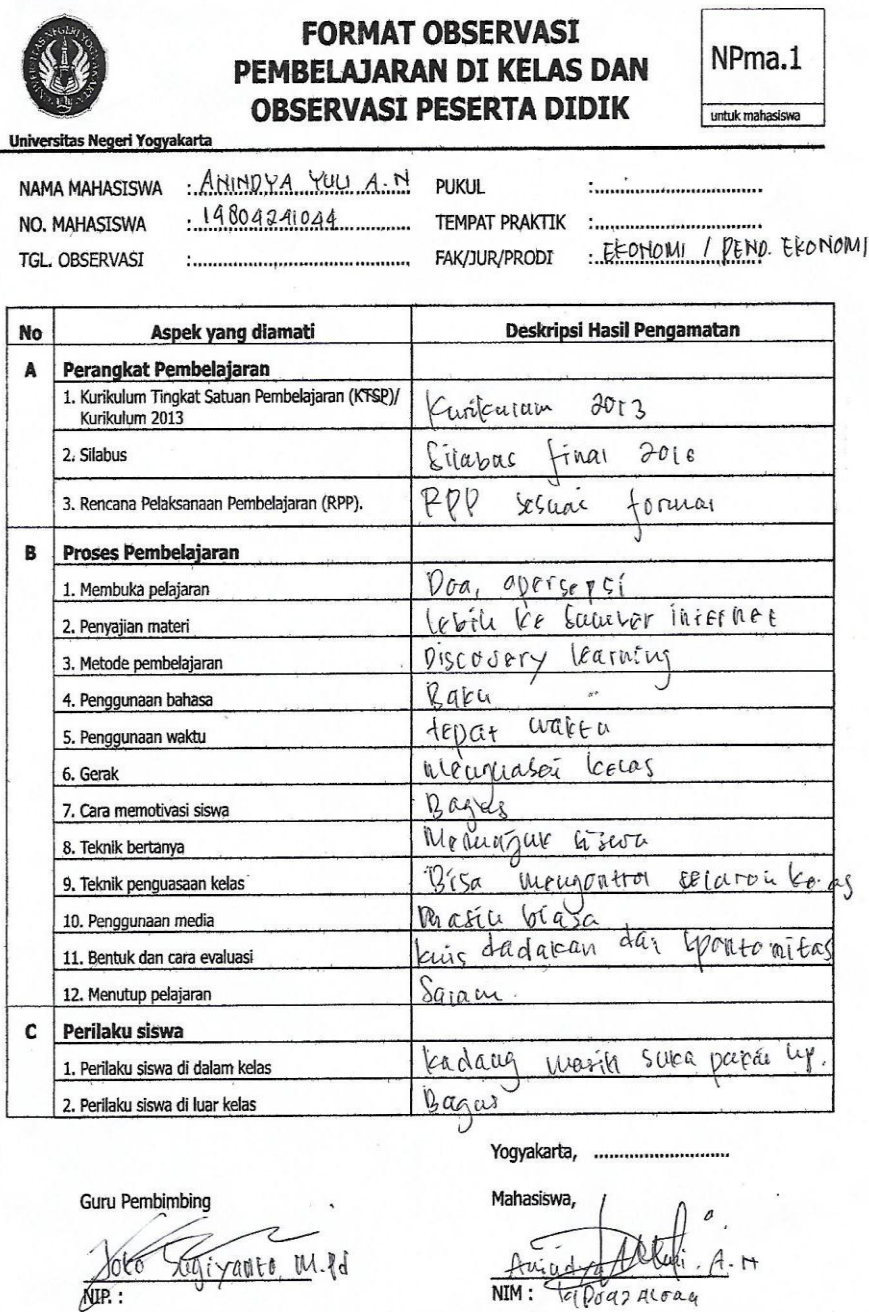 FORMAT OBSERVASI
PEMBELAJARAN DI KELAS DAN
OBSERVASI PESERTA DIDIK
NPma.1
untuk mahasiswa
Universitas Negeri Yogyakarta
NAMA MAHASISWA : ANINDYA YULI A.N PUKUL :
NO. MAHASISWA : 19804241044 TEMPAT PRAKTIK :
TGL. OBSERVASI : FAK/JUR/PRODI : EKONOMI / PEND. EKONOMI
No Aspek yang diamati Deskripsi Hasil Pengamatan
A Perangkat Pembelajaran
1. Kurikulum Tingkat Satuan Pembelajaran (KTSP)/ Kurikulum 2013
Kurikulum 2013
2. Silabus Silabus final 2016
3. Rencana Pelaksanaan Pembelajaran (RPP). RPP sesuai format
B Proses Pembelajaran
1. Membuka pelajaran Doa, apersepsi
2. Penyajian materi lebih ke sumber internet
3. Metode pembelajaran Discovery learning
4. Penggunaan bahasa Baku
5. Penggunaan waktu tepat waktu
6. Gerak Menguasai kelas
7. Cara memotivasi siswa Bagus
8. Teknik bertanya Menunjuk siswa
9. Teknik penguasaan kelas Bisa mengontrol seluruh kelas
10. Penggunaan media Masih biasa
11. Bentuk dan cara evaluasi kuis dadakan dan spontanitas
12. Menutup pelajaran Salam.
C Perilaku siswa
1. Perilaku siswa di dalam kelas kadang masih suka pakai hp.
2. Perilaku siswa di luar kelas Bagus
Yogyakarta,
Guru Pembimbing Mahasiswa,
Joko Sugiyanto, M.Pd Anindya Yuli. A.N
NIP. : NIM :